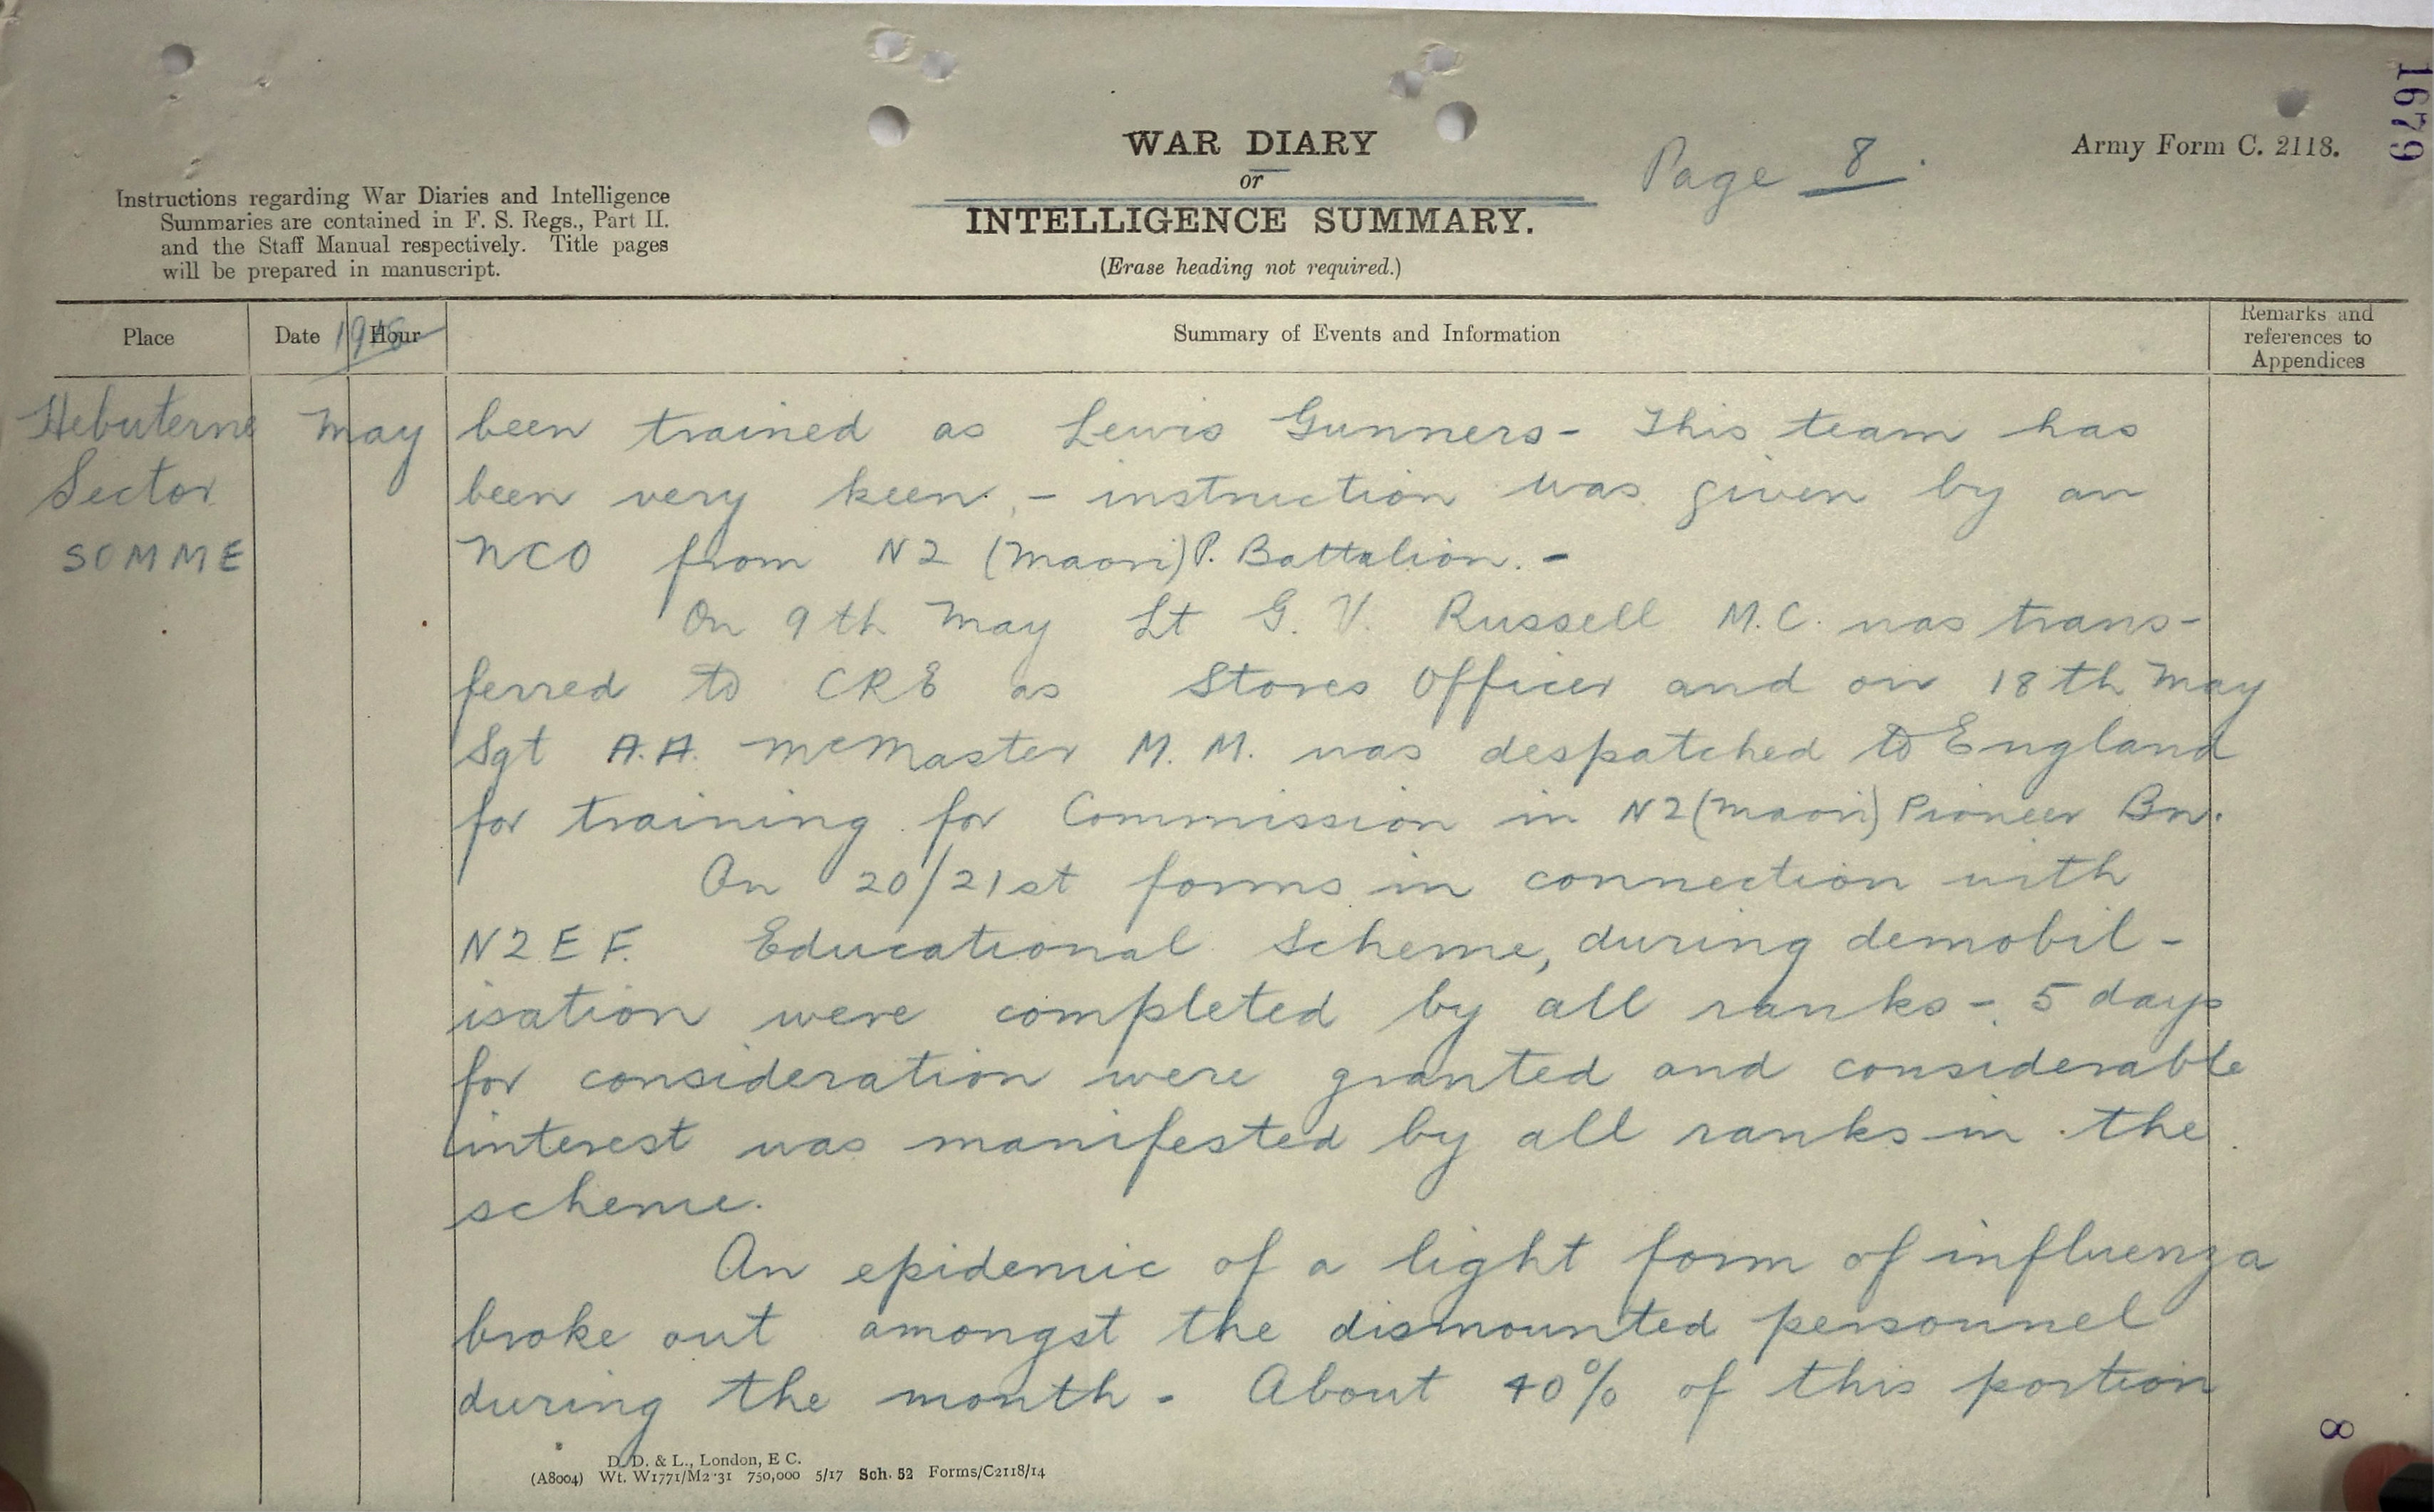 1679
WAR DIARY
or
INTELLIGENCE SUMMARY.
(Erase heading not required.)
Page 8.
Army Form C. 2118.
Instructions regarding War Diaries and Intelligence
Summaries are contained in F. S. Regs., Part II.
and the Staff Manual respectively. Title pages
will be prepared in manuscript.
Place
Date
Hour
Summary of Events and Information
Remarks and
references to
Appendices
Hebuterne
Sector
SOMME
May
been trained as Lewis Gunners - This team has
been very keen, - instruction was given by an
NCO from NZ (Maori) P. Battalion. -
On 9th May Lt G. V. Russell M.C. was trans-
ferred to CRE as Stores Officer and on 18th May
Sgt A.A. McMaster M.M. was despatched to England
for training for Commission in NZ (Maori) Pioneer Bn.
On 20/21st forms in connection with
NZEF. Educational Scheme, during demobil-
isation were completed by all ranks - 5 days
for consideration were granted and considerable
interest was manifested by all ranks in the
scheme.
An epidemic of a light form of influenza
broke out amongst the dismounted personnel
during the month - About 40% of this portion
D. D. & L., London, E C.
(A8004) Wt. W1771/M2 31 750,000 5/17 Sch. 52 Forms/C2118/14
8